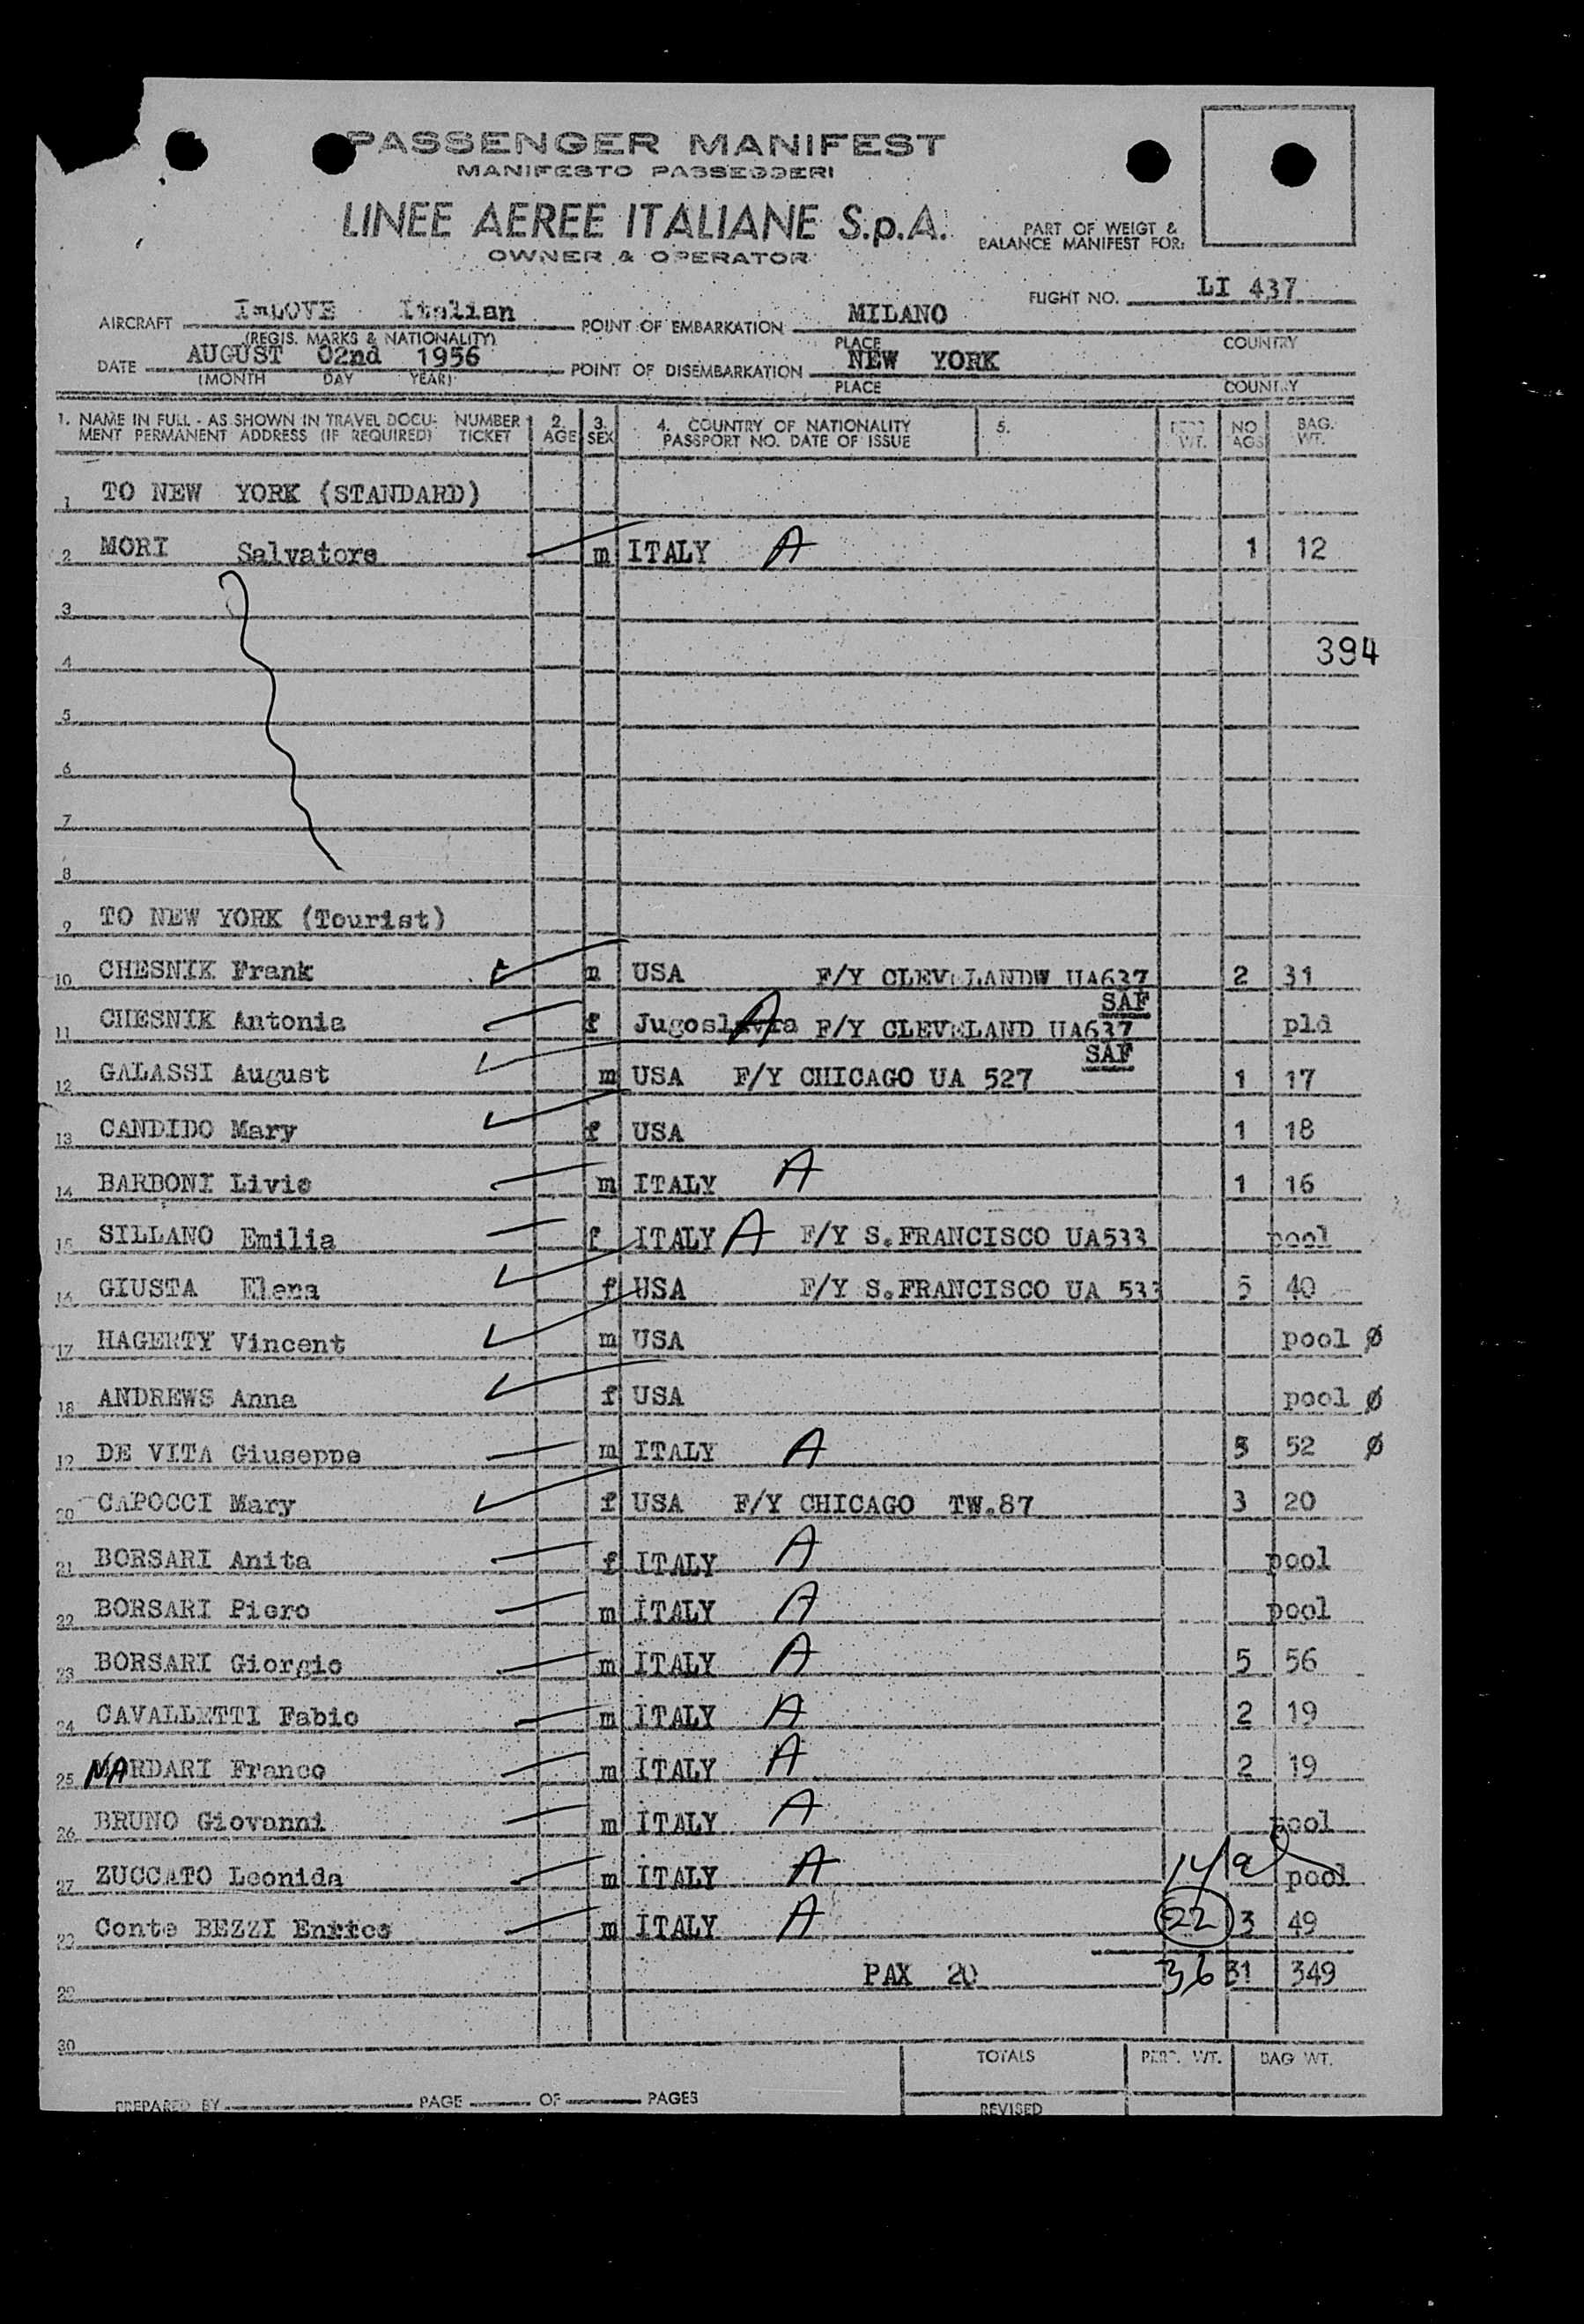 PASSENGER MANIFEST
MANIFESTO PASSEGGERI
LINEE AEREE ITALIANE S.p.A.
OWNER & OPERATOR
PART OF WEIGT &
BALANCE MANIFEST FOR:
FLIGHT NO. LI 437
AIRCRAFT I=LOVE Italian POINT OF EMBARKATION MILANO
(REGIS. MARKS & NATIONALITY) PLACE COUNTRY
DATE AUGUST 02nd 1956 POINT OF DISEMBARKATION NEW YORK
(MONTH DAY YEAR) PLACE COUNTRY
1. NAME IN FULL - AS SHOWN IN TRAVEL DOCU- NUMBER 2. 3. 4. COUNTRY OF NATIONALITY 5. NO BAG.
MENT PERMANENT ADDRESS (IF REQUIRED) TICKET AGE SEX PASSPORT NO. DATE OF ISSUE WT. AGS WT.
1 TO NEW YORK (STANDARD)
2 MORI Salvatore m ITALY A 1 12
3
4 394
5
6
7
8
9 TO NEW YORK (Tourist)
10 CHESNIK Frank m USA F/Y CLEVELANDW UA637 2 31
SAF
11 CHESNIK Antonia f Jugoslavia A F/Y CLEVELAND UA637 pld
SAF
12 GALASSI August m USA F/Y CHICAGO UA 527 1 17
13 CANDIDO Mary f USA 1 18
14 BARBONI Livio m ITALY A 1 16
15 SILLANO Emilia f ITALY A F/Y S.FRANCISCO UA533 pool
16 GIUSTA Elena f USA F/Y S.FRANCISCO UA 533 5 40
17 HAGERTY Vincent m USA pool Ø
18 ANDREWS Anna f USA pool Ø
19 DE VITA Giuseppe m ITALY A 5 52 Ø
20 CAPOCCI Mary f USA F/Y CHICAGO TW.87 3 20
21 BORSARI Anita f ITALY A pool
22 BORSARI Piero m ITALY A pool
23 BORSARI Giorgio m ITALY A 5 56
24 CAVALLETTI Fabio m ITALY A 2 19
25 NARDARI Franco m ITALY A 2 19
26 BRUNO Giovanni m ITALY A pool
27 ZUCCATO Leonida m ITALY A 14 a pool
28 Conte BEZZI Enrico m ITALY A 22 3 49
29 PAX 20 36 31 349
30
TOTALS PERS. WT. BAG WT.
PREPARED BY PAGE OF PAGES
REVISED